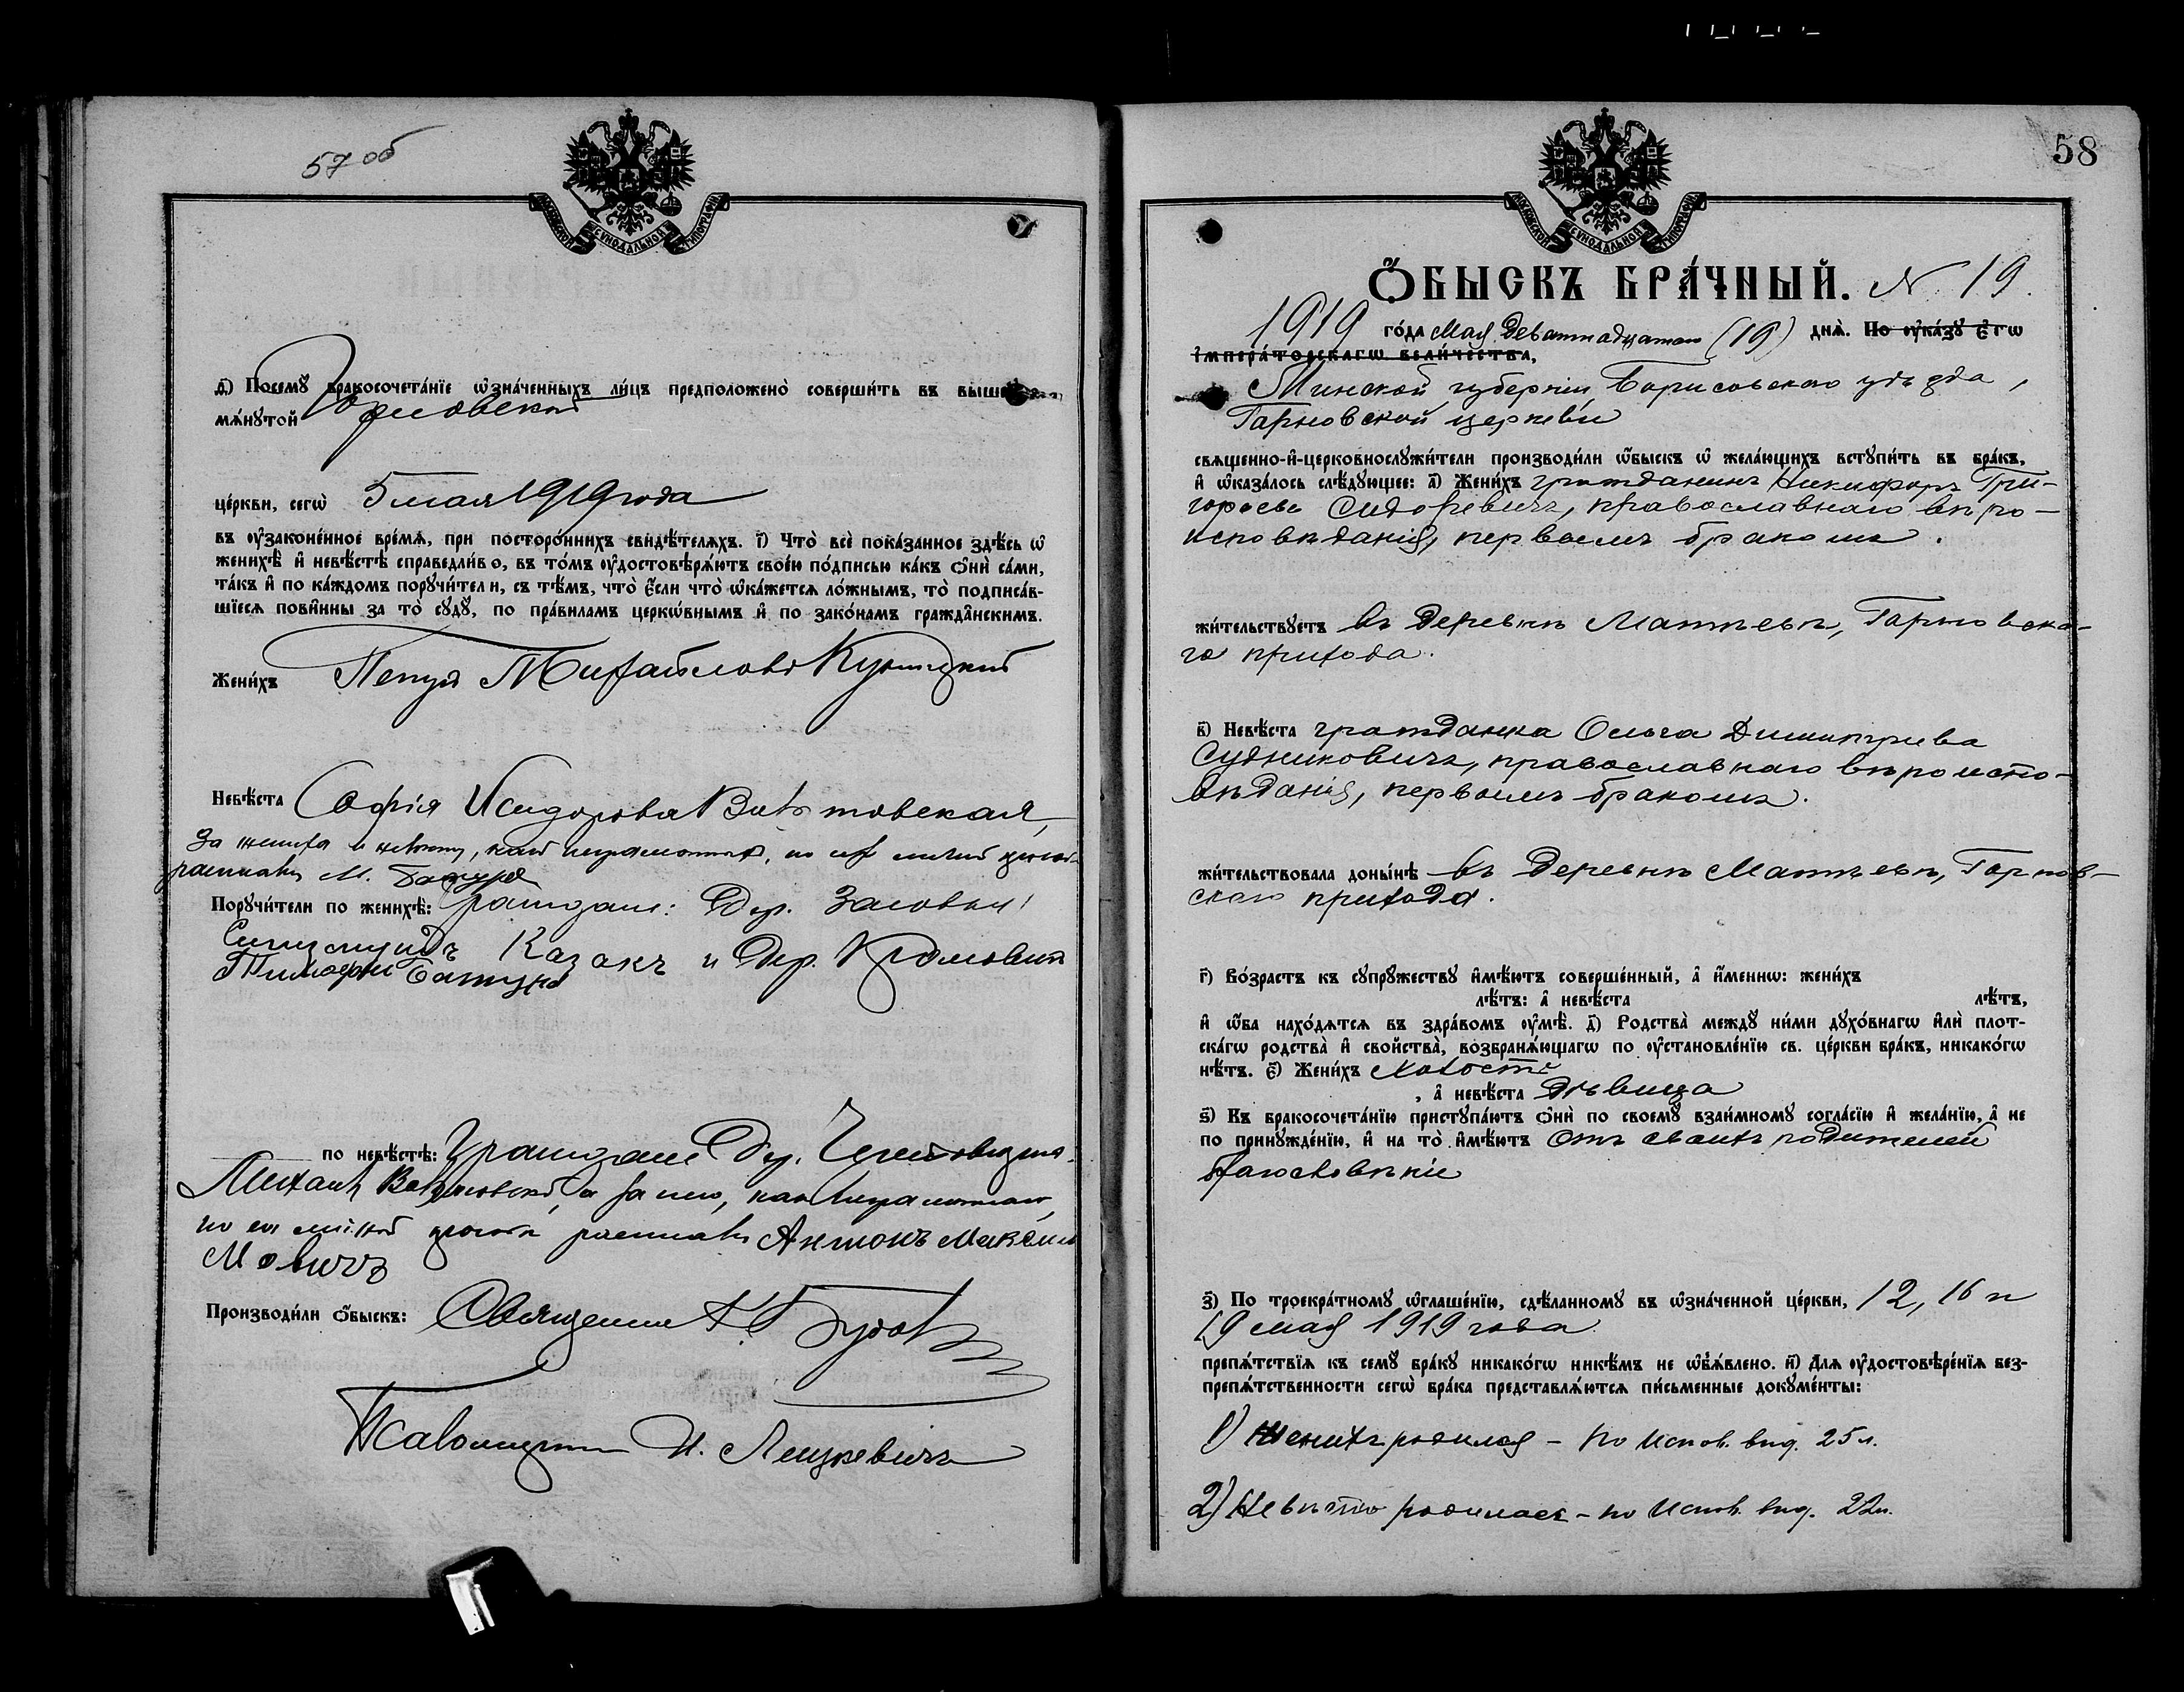 57 об
МОСКОВСКОЙ СѴНОДАЛЬНОЙ ТИПОГРАФІИ
д҃) Посемꙋ̀ бракосочета́нїе ѡ҆зна́ченныхъ ли́цъ предположено̀ соверши́ть въ выше
мѧ́нꙋтой
це́ркви, сегѡ̀ 5 мая 1919 года
въ ᲂу҆законе́нное вре́мѧ, при посторо́ннихъ свидѣ́телѧхъ. і҃) Что̀ всѐ пока́занное здѣ́сь ѡ҆
женихѣ̀ и҆ невѣ́стѣ справедли́во, въ то́мъ ᲂу҆достовѣрѧ́ютъ свое́ю по́дписью ка́къ ѻ҆нѝ са́ми,
та́къ и҆ по ка́ждомъ порꙋчи́тели, съ тѣ́мъ, что̀ є҆́сли что̀ ѡ҆ка́жетсѧ ло́жнымъ, то̀ подписа́в-
шїесѧ пови́нны за то̀ сꙋдꙋ̀, по пра́виламъ церкѡ́внымъ и҆ по зако́намъ гражда̑нскимъ.
Жени́хъ Петръ Михайловъ
Невѣ́ста Софія Исидорова
за жениха и невѣсту, какъ неграмотныхъ, по ихъ личной просьбѣ
М. Батура
Порꙋчи́тели по женихѣ̀: Граждане: дер.
Казакъ и дер.
Тимофей Батура
по невѣ́стѣ: Граждане дер.
Михаилъ а за него, какъ неграмотнаго,
по его личной просьбѣ Антонъ Макси
мовичъ
Производи́ли ѻ҆́быскъ: Священникъ
Псаломщикъ И.
58
МОСКОВСКОЙ СѴНОДАЛЬНОЙ ТИПОГРАФІИ
Ѻ҆́БЫСКЪ БРА́ЧНЫЙ. N. 19.
1919 го́да Мая девятнадцатаго (19) днѧ̀. По ᲂу҆ка́зꙋ є҆гѡ̀
і҆мпера́торскагѡ вели́чества,
Минской губерніи, Борисовскаго уѣзда,
Гарновской церкви
свѧще́нно-и҆-церковнослꙋжи́тели производи́ли ѻ҆́быскъ ѡ҆ жела́ющихъ встꙋпи́ть въ бра́къ,
и҆ ѡ҆каза́лось слѣ́дꙋющее: а҃) Жени́хъ гражданинъ Никифоръ Гри-
горьевъ Сидоревичъ, православнаго вѣро-
исповѣданія, первымъ бракомъ.
жи́тельствꙋетъ въ деревнѣ Гарновска-
го прихода.
в҃) Невѣ́ста гражданка Ольга Димитріева
Судниковичъ, православнаго вѣроиспо-
вѣданія, первымъ бракомъ.
жи́тельствовала доны́нѣ въ деревнѣ Гарнов-
скаго прихода.
г҃) Во́зрастъ къ сꙋпрꙋ́жествꙋ и҆мѣ́ютъ соверше́нный, а҆ и҆́меннѡ: жени́хъ
лѣ́тъ: а҆ невѣ́ста лѣ́тъ,
и҆ ѻ҆́ба нахо́дѧтсѧ въ здра́вомъ ᲂу҆мѣ̀. д҃) Родства̀ междꙋ̀ ни́ми дꙋхо́внагѡ и҆лѝ плот-
ска́гѡ родства̀ и҆ сво́йства̀, возбранѧ́ющагѡ по ᲂу҆становле́нїю св. це́ркви бра́къ, никако́гѡ
нѣ́тъ. є҃) Жени́хъ холостъ
, а҆ невѣ́ста дѣвица
ѕ҃) Къ бракосочета́нїю пристꙋпа́ютъ ѻ҆нѝ по своемꙋ̀ взаи́мномꙋ согла́сїю и҆ жела́нїю, а҆ не
по принꙋжде́нїю, и҆ на то̀ и҆мѣ́ютъ отъ своихъ родителей
благословѣніе
з҃) По троекра́тномꙋ ѡ҆глаше́нїю, сдѣ́ланномꙋ въ ѡ҆зна́ченной це́ркви, 12, 16 и
19 мая 1919 года
препѧ́тствїѧ къ семꙋ̀ бра́кꙋ никако́гѡ никѣ́мъ не ѡ҆б̾ѧ́влено. и҃) Длѧ ᲂу҆достовѣре́нїѧ без-
препѧ́тственности сегѡ̀ бра́ка представлѧ́ютсѧ пи́сьменные докꙋме́нты:
1) Женихъ родился - по Испов. вѣд. 25 л.
2) Невѣста родилась - по Испов. вѣд. 22 л.